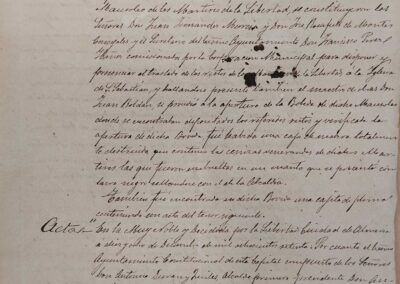 Mausoleo de los Martires de la Libertad, se constituyeron los
Señores Don Juan Fernandez Murcia y Don José
Gonzalez y el Secretario del Excmo Ayuntamiento Don Francisco Perez
comisionados por la Corporacion Municipal para disponer y
presenciar el traslado de los restos de los Martires de la Libertad á la Iglesia
de S. Sebastian, y hallandose presente tambien el maestro de obras Don
Juan Roldan, se procedió á la apertura de la Boveda de dicho Mausoleo
donde se encontraban depositados los referidos restos y verificada la
apertura de dicha Boveda, fué hallada una caja de madera totalmente
destruida que contenia las cenizas venerandas de dichos Mar-
tires las que fueron envueltas en un manto que se precintó con
lacre negro sellandose con el de la Alcaldia.
Tambien fué encontrada en dicha Boveda una cajita de plomo
conteniendo un acta del tenor siguiente.
Acta " En la Muy Noble y Decidida por la Libertad Ciudad de Almeria
á de de mil ochocientos: Por cuanto el Excmo
Ayuntamiento Constitucional de esta Capital compuesto de los Señores
Don Antonio Alcalde primero presidente Don